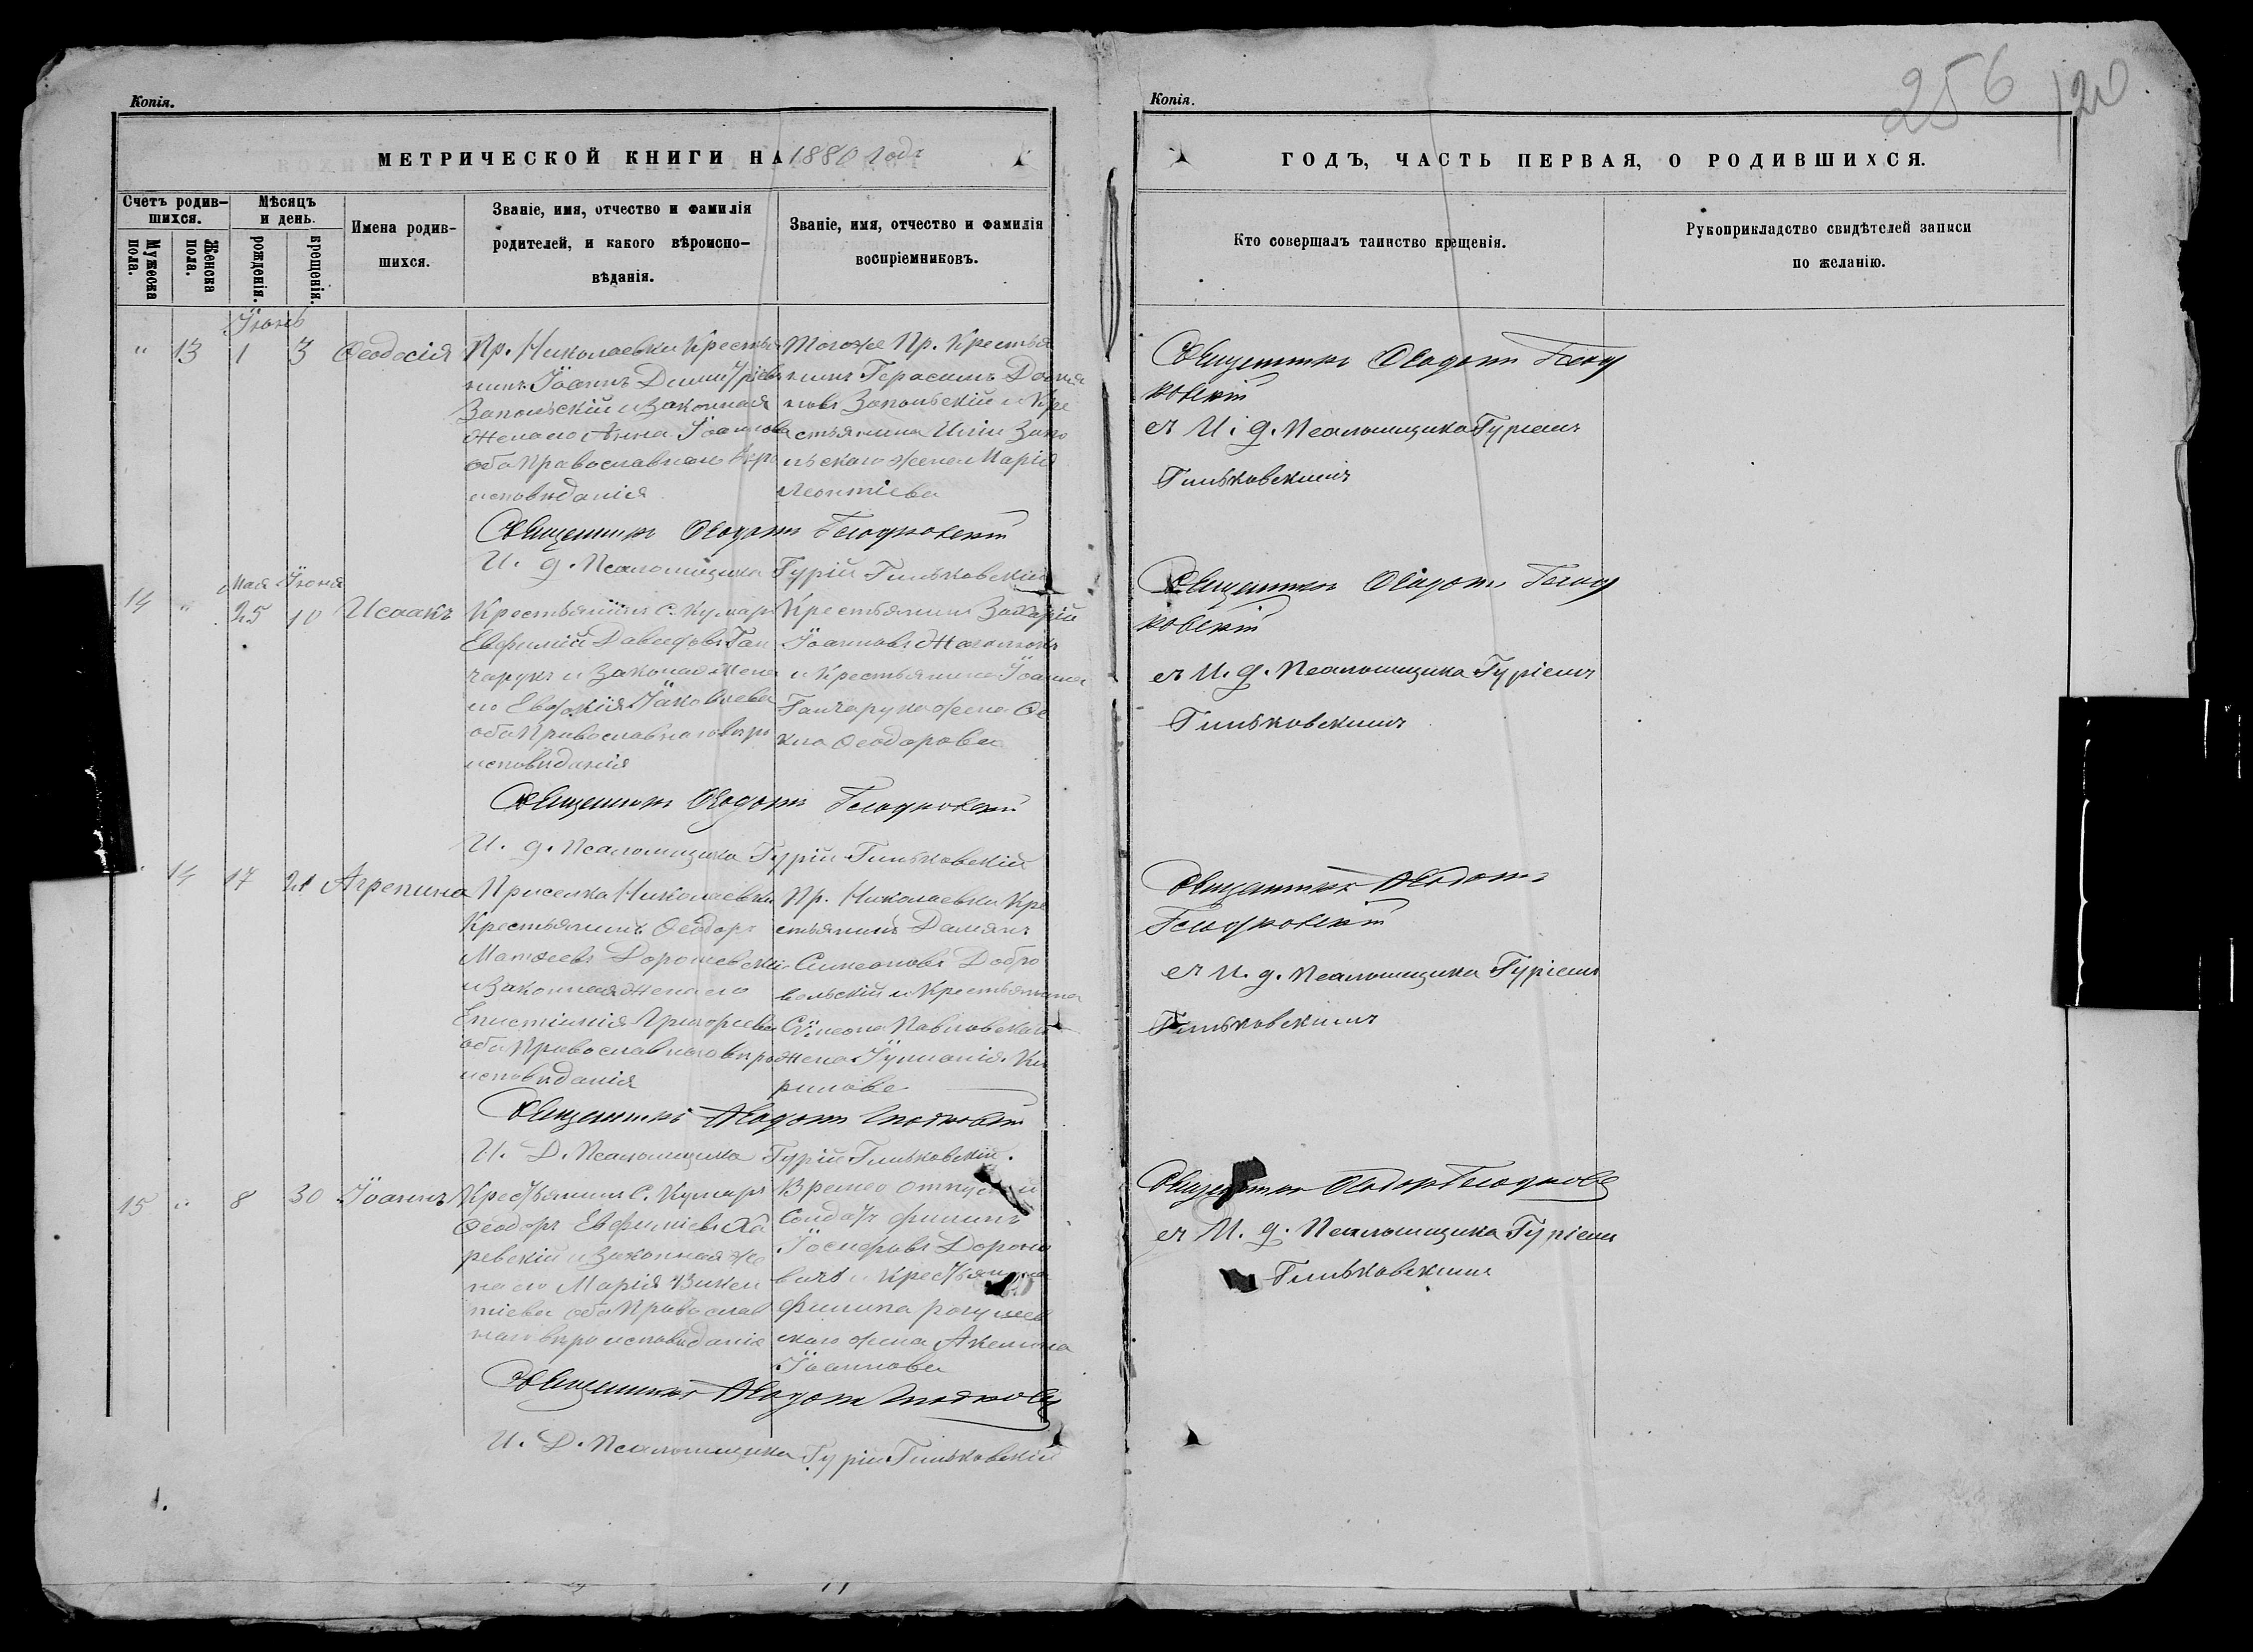 Копія.
МЕТРИЧЕСКОЙ КНИГИ НА 1880 годъ
Счетъ родив-
шихся.
Мужеска пола.
Женска пола.
Мѣсяцъ
и день.
рожденія.
крещенія.
Имена родив-
шихся.
Званіе, имя, отчество и фамилія
родителей, и какого вѣроиспо-
вѣданія.
Званіе, имя, отчество и фамилія
воспріемниковъ.
Іюнь
" 13 1 3 Ѳеодосія
Пр. Николаевки Крестья
нинъ Іоаннъ Димитріевъ
Запольскій и Законная
Жена его Анна Іоаннова
оба Православнаго вѣро
исповѣданія
Тогоже Пр. Крестья
нинъ Герасимъ
новъ Запольскій и Кре
стьянина Иліи Запо
льскаго жена Марія
Леонтіева
Священникъ Ѳеодотъ
И. д. Псаломщика Гурій Гиньковскій
Мая Іюня
14 " 25 10 Исаакъ
Крестьянинъ с. Кумаръ
Евфимій Давидовъ Ган
чарукъ и Законая жена
его Іаковлева
оба Православнаго вѣро
исповѣданія
Крестьянинъ Захарій
Іоанновъ
и Крестьянина Іоанна
Ганчарука жена Ѳе
кла Ѳеодорова
Священникъ Ѳеодотъ
И. д. Псаломщика Гурій Гиньковскій
" 14 17 21 Агрепина
Приселка Николаевки
Крестьянинъ Ѳеодоръ
Матѳеевъ Дорошевскій
и Законная Жена его
Епистимія Григорьева
оба Православнаго вѣро
исповѣданія
Пр. Николаевки Кре
стьянинъ Даміанъ
Симеоновъ Добро
вольскій и Крестьянина
Симеона Павловскаго
жена Іуліанія Ки
рилова
Священникъ Ѳеодотъ
И. Д. Псаломщика Гурій Гиньковскій.
15 " 8 30 Іоаннъ
Крестьянинъ С. Кумаръ
Ѳеодоръ Евфиміевъ Ха
ревскій и Законная же
на его Марія Викен
тіева оба Православ
наго вѣроисповѣданія
Солдатъ Филипъ
Іосифовъ Дороно
вичъ и Крестьянина
Филипа
скаго жена Акелина
Іоаннова
Священникъ Ѳеодотъ
И. Д. Псаломщика Гурій Гиньковскій
Копія.
256 120
ГОДЪ, ЧАСТЬ ПЕРВАЯ, О РОДИВШИХСЯ.
Кто совершалъ таинство крещенія.
Рукоприкладство свидѣтелей записи
по желанію.
Священникъ Ѳеодотъ
съ И. д. Псаломщика Гуріемъ
Гиньковскимъ
Священникъ Ѳеодотъ
съ И. д. Псаломщика Гуріемъ
Гиньковскимъ
Священникъ Ѳеодотъ
съ И. д. Псаломщика Гуріемъ
Гиньковскимъ
Священникъ
съ И. д. Псаломщика Гуріемъ
Гиньковскимъ